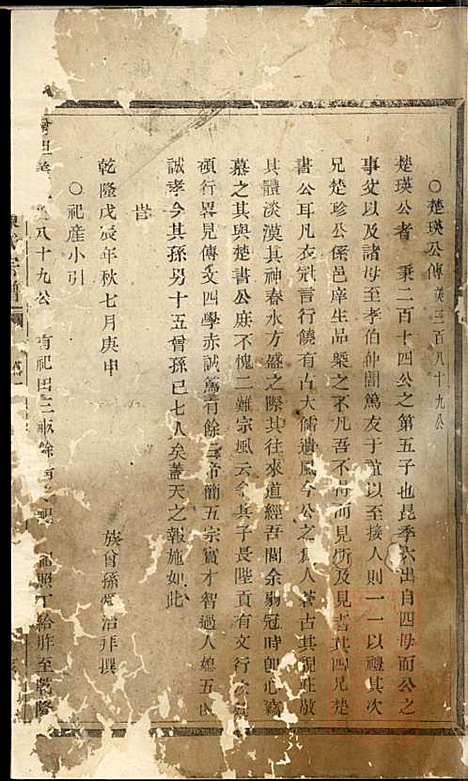 ○楚瑛公傳 義三百八十九公
楚瑛公者 秉二百十四公之第五子也昆季六出自四母而公之
事父以及諸母至孝伯仲間篤友于誼以至接人則一一以禮其次
兄楚珍公係邑庠生品槩之不凡吾不得而見所及見者其四兄楚
書公耳凡衣冠言行饒有古大儒遺風今公之為人蒼古其貌莊敬
其體淡漠其神春水方盛之際其往來道經吾閭余弱冠時卽心竊
慕之其與楚書公庶不愧二難宗風云今其子長陞頁有文行
碩行畧見傳文四學赤誠篤有餘三音簡五宗實才智過人媳五
誠孝今其孫男十五曾孫已七人矣蓋天之報施如此
旹
乾隆戊辰年秋七月庚申 族曾孫 治拜撰
○祀產小引
八十九公 有祀田三畝餘 照丁給胙至乾隆